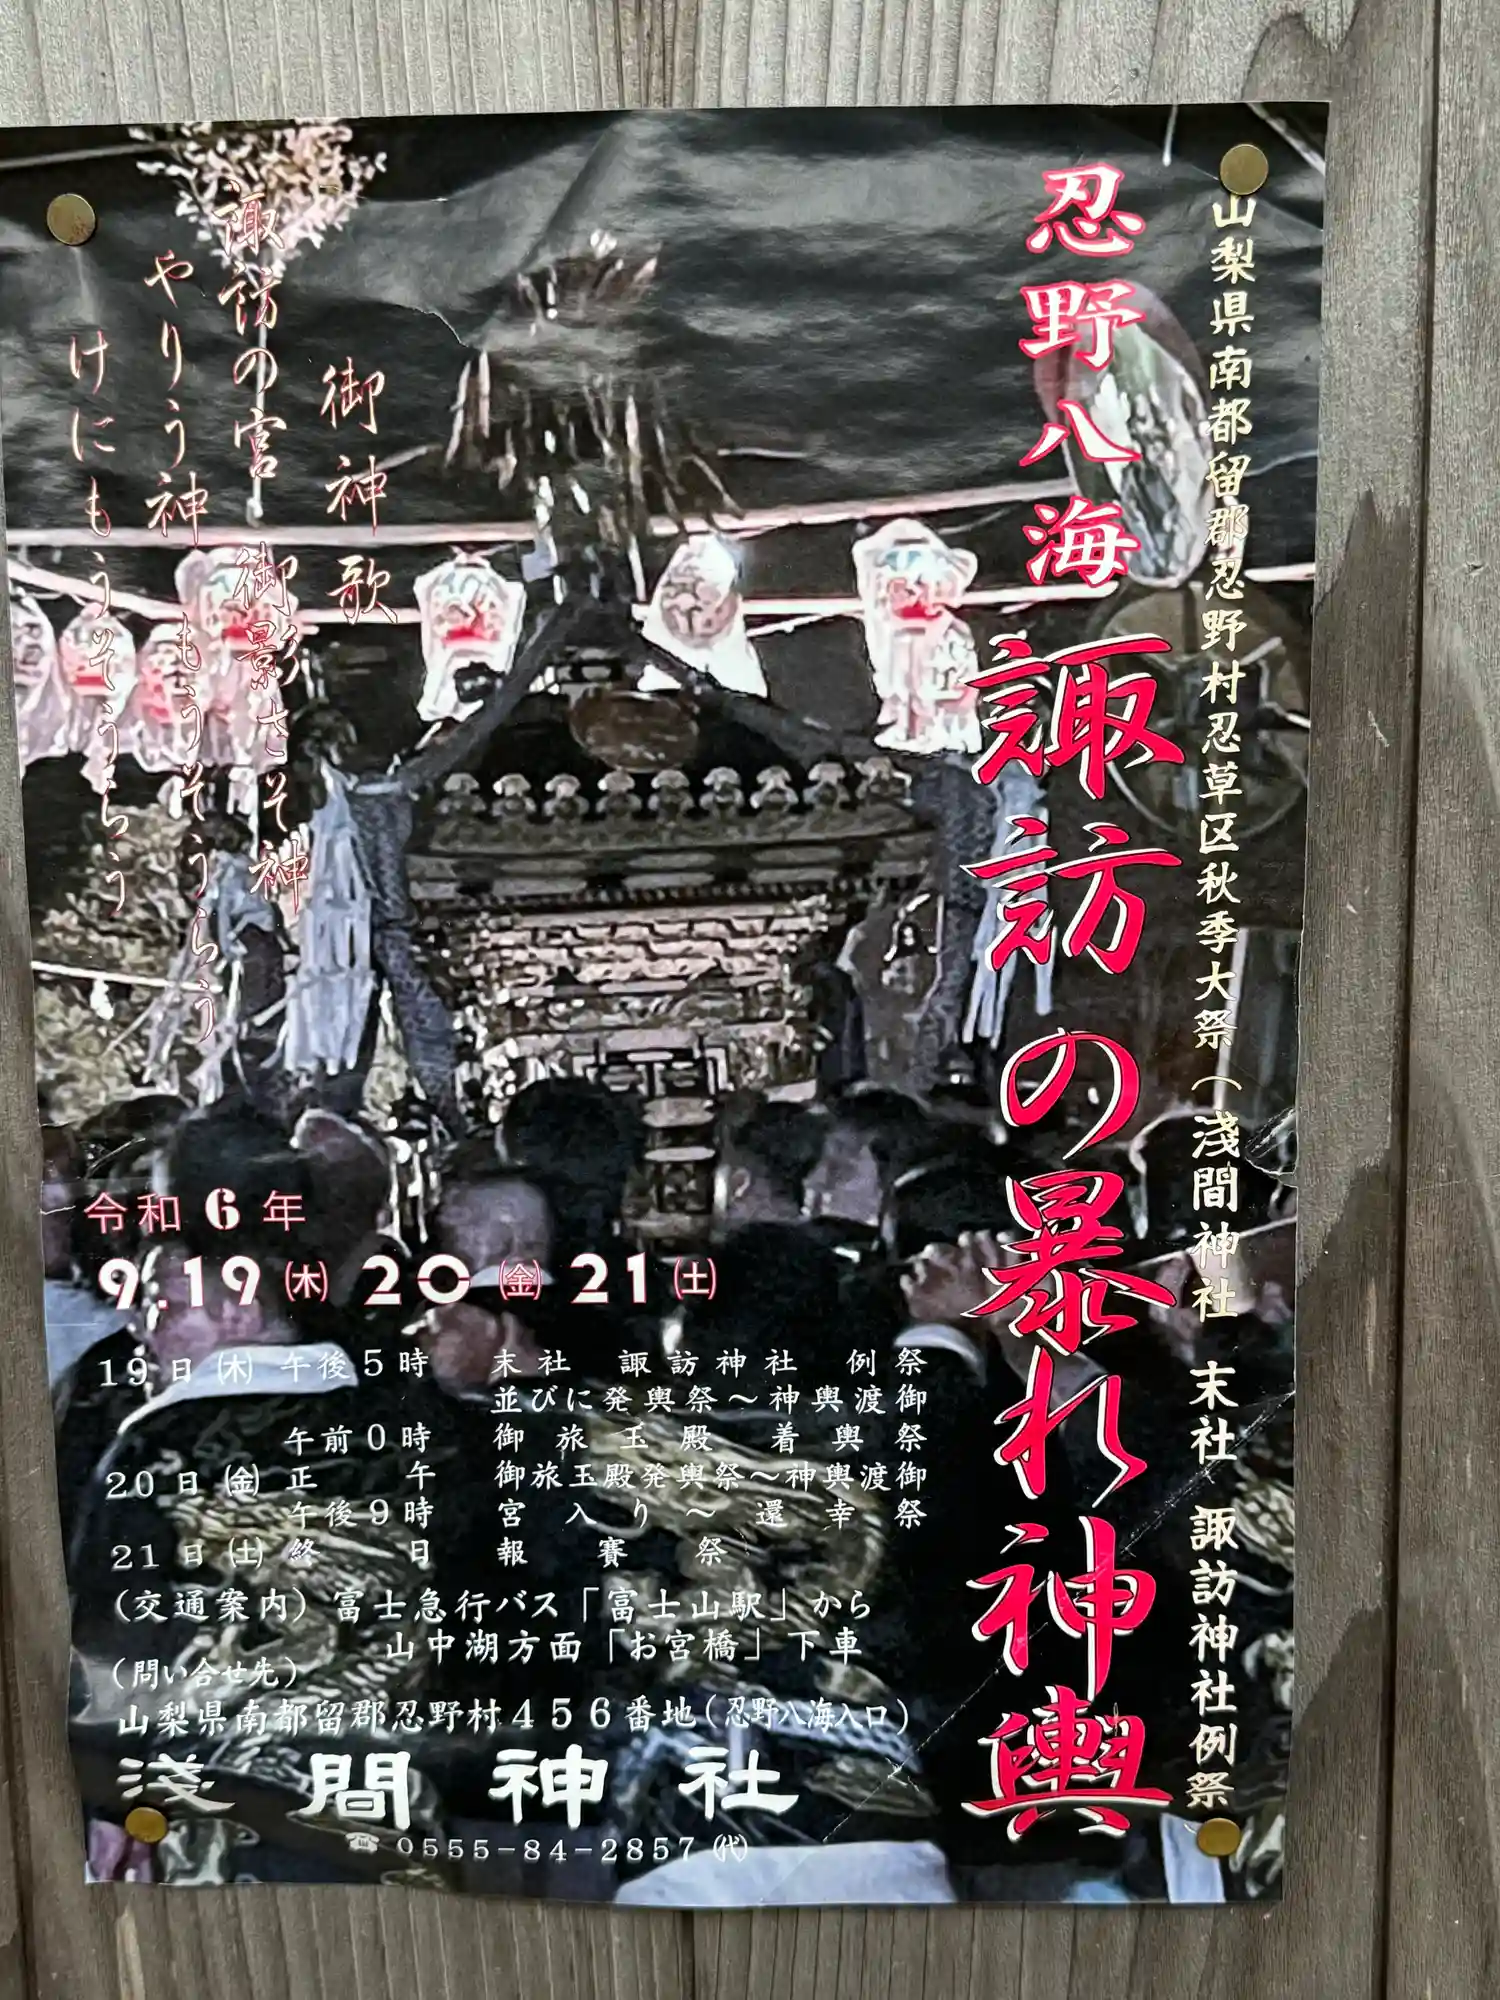 山梨県南都留郡忍野村忍草区秋季大祭（淺間神社 末社 諏訪神社例祭
忍野八海 諏訪の暴れ神輿
御神歌
諏訪の宮 御影さそ神
もうそうらう
やりう神
けにもうそうらう
令和6年
9.19㈭20㈮21㈯
19日㈭ 午後5時 末社 諏訪神社 例祭
並びに発輿祭～神輿渡御
午前0時 御旅玉殿着輿祭
20日㈮ 正午 御旅玉殿発輿祭～神輿渡御
午後9時 宮入り～還幸祭
21日㈯ 終日 報賽祭
（交通案内）富士急行バス「富士山駅」から
山中湖方面「お宮橋」下車
（問い合せ先）
山梨県南都留郡忍野村456番地（忍野八海入口）
淺間神社
☎0555-84-2857㈹